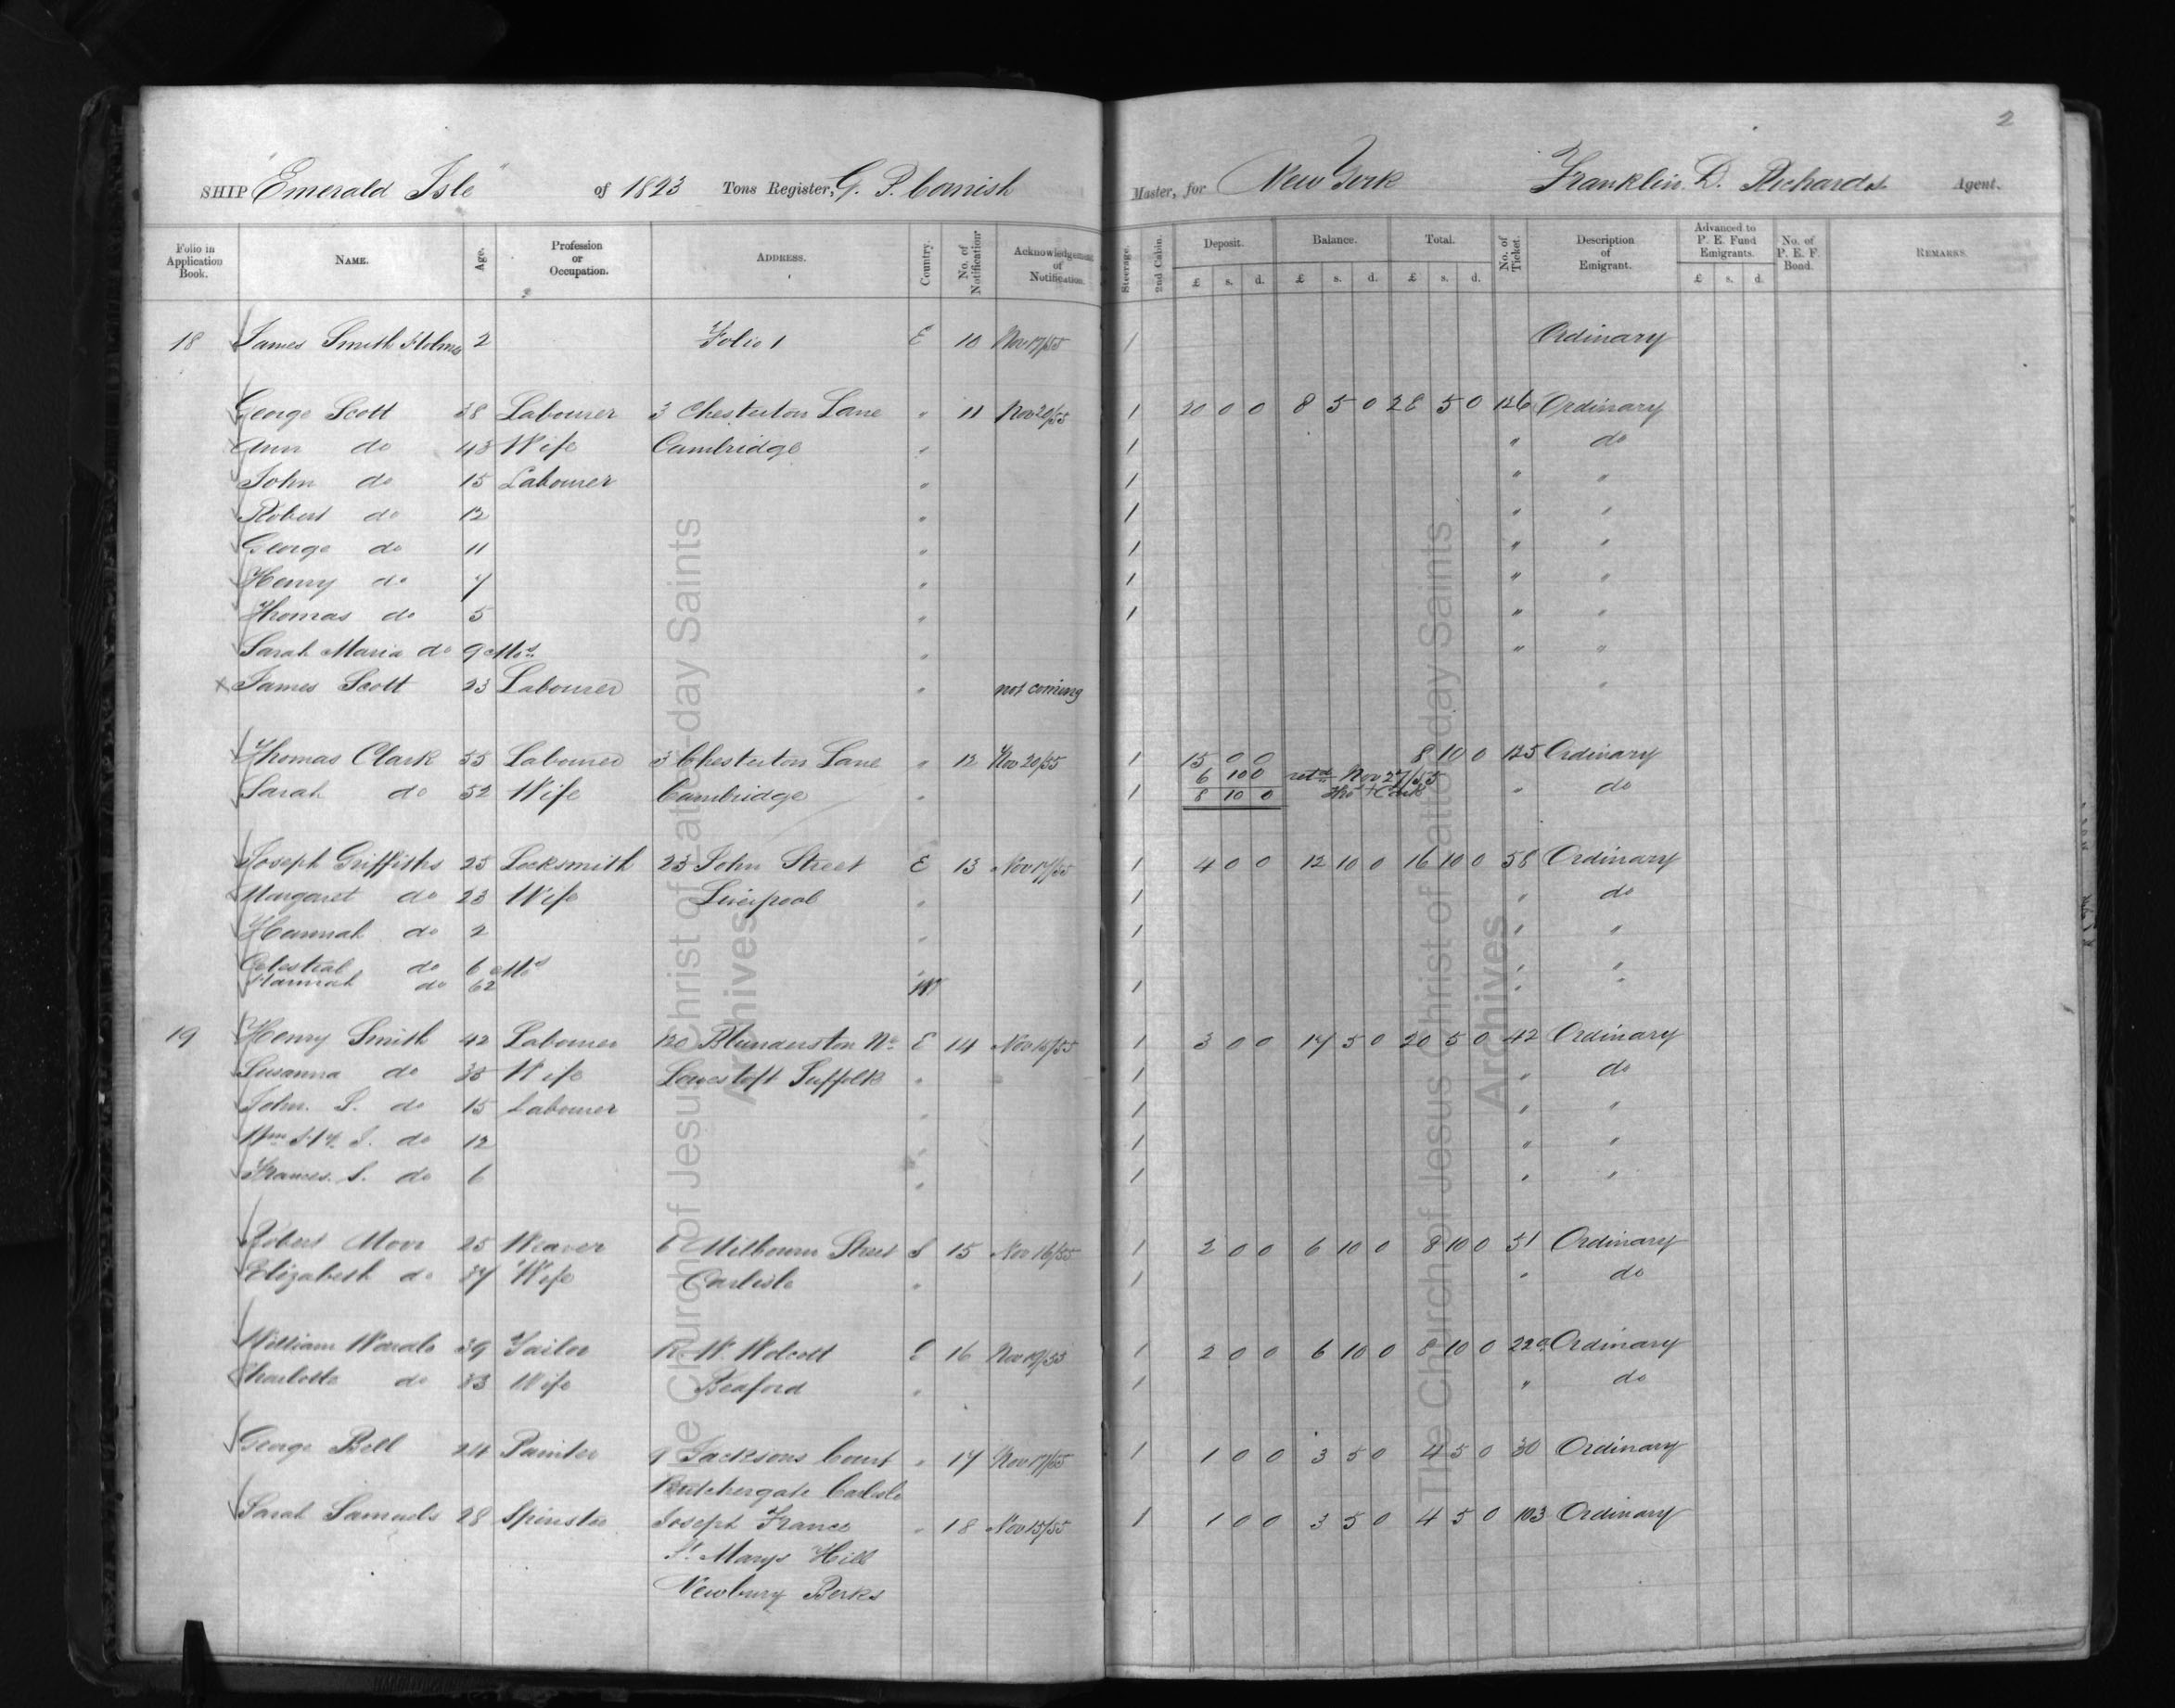 2
SHIP "Emerald Isle" of 1823 Tons Register, G. P. Cornish Master, for New York Franklin D. Richards Agent.
Folio in Application Book. NAME. Age. Profession or Occupation. ADDRESS. Country. No. of Notification Acknowledgement of Notification. Steerage. 2nd Cabin. Deposit. Balance. Total. No. of Ticket. Description of Emigrant. Advanced to P. E. Fund Emigrants. No. of P. E. F. Bond. REMARKS.
£ s. d. £ s. d. £ s. d. £ s. d.
18 James Smith Holmes 2 Folio 1 E 10 Nov 17/55 1 Ordinary
George Scott 38 Labourer 3 Chesterton Lane " 11 Nov 20/55 1 20 0 0 8 5 0 28 5 0 126 Ordinary
Ann do 43 Wife Cambridge " 1 " do
John do 15 Labourer " 1 " "
Robert do 12 " 1 " "
George do 11 " 1 " "
Henry do 7 " 1 " "
Thomas do 5 " 1 " "
Sarah Maria do 9 Mos " " "
x James Scott 23 Labourer " not coming "
Thomas Clark 55 Labourer 3 Chesterton Lane " 12 Nov 20/55 1 15 0 0 8 10 0 125 Ordinary
6 10 0 retd Nov 27/55
Sarah do 52 Wife Cambridge " 1 8 10 0 Clark " do
Joseph Griffiths 25 Locksmith 23 John Street E 13 Nov 17/55 1 4 0 0 12 10 0 16 10 0 58 Ordinary
Margaret do 23 Wife Liverpool " 1 " do
Hannah do 2 " 1 " "
Celestial do 6 Mos " "
Hannah do 62 W 1 " "
19 Henry Smith 42 Labourer 120 Blunderston Nr E 14 Nov 16/55 1 3 0 0 17 5 0 20 5 0 42 Ordinary
Susanna do 35 Wife Lowestoft Suffolk " 1 " do
John. S. do 15 Labourer " 1 " "
Wm Hy. S. do 12 " 1 " "
Frances. S. do 6 " 1 " "
Robert Moor 25 Weaver 6 Milbourn Street S 15 Nov 16/55 1 2 0 0 6 10 0 8 10 0 51 Ordinary
Elizabeth do 37 Wife Carlisle " 1 " do
William 39 Tailor R. W. Wolcott E 16 Nov 19/55 1 2 0 0 6 10 0 8 10 0 229 Ordinary
Charlotte do 33 Wife Beaford " 1 " do
George Bell 24 Painter 9 Jacksons Court " 17 Nov 17/55 1 1 0 0 3 5 0 4 5 0 30 Ordinary
Butchergate Carlisle
Sarah Samuels 28 Spinster Joseph France " 18 Nov 15/55 1 1 0 0 3 5 0 4 5 0 103 Ordinary
St Marys Hill
Newbury Berks
The Church of Jesus Christ of Latter-day Saints
Archives
The Church of Jesus Christ of Latter-day Saints
Archives